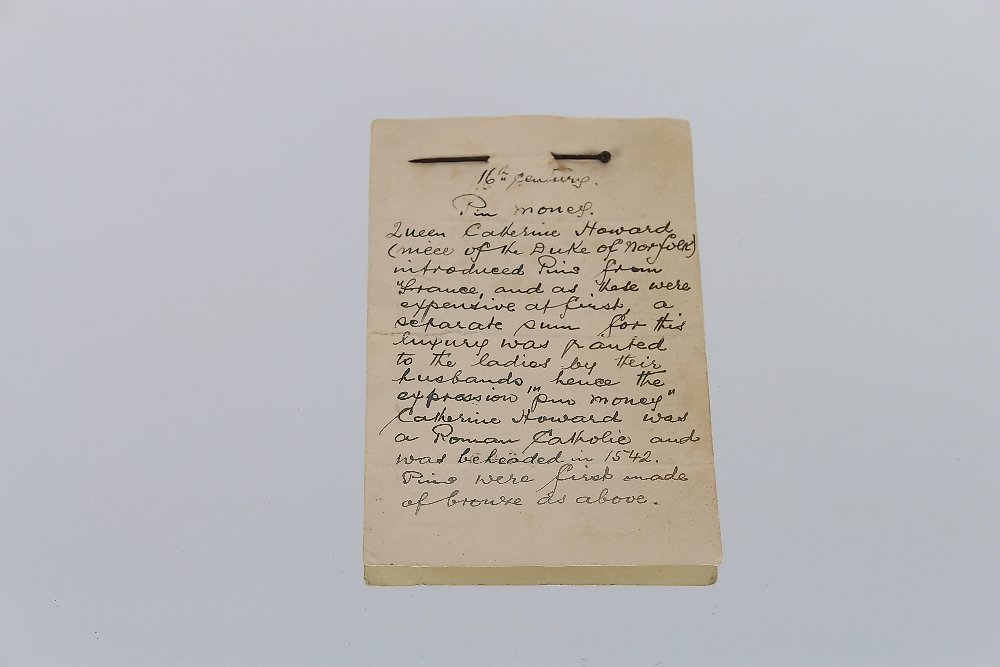 16th century.
Pin money.
Queen Catherine Howard
(niece of the Duke of Norfolk)
introduced Pins from
France, and as these were
expensive at first, a
separate sum for this
luxury was granted
to the ladies by their
husbands, hence the
expression "pin money"
Catherine Howard was
a Roman Catholic and
was beheaded in 1542.
Pins were first made
of bronze as above.